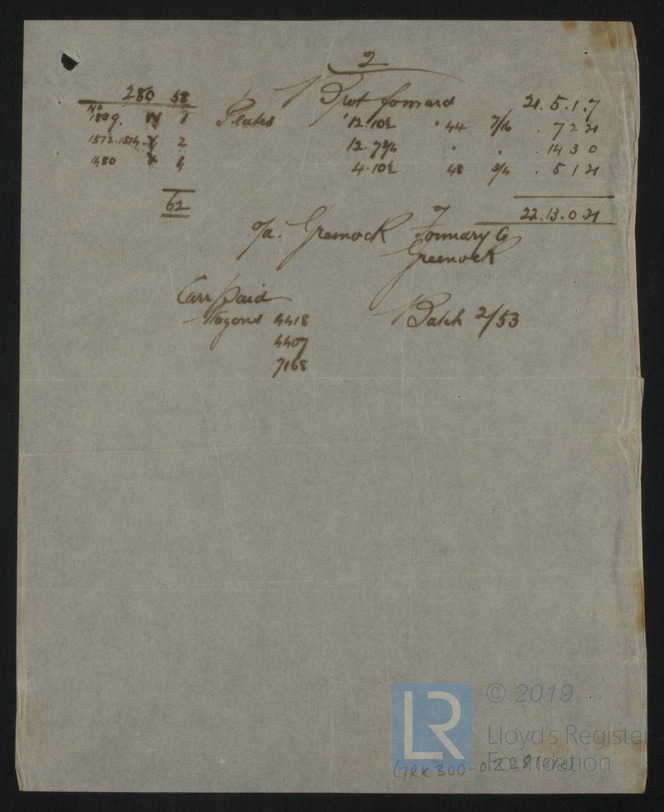 2
280 58 Brot forward 21.5.1.7
No 1809. W 1 Plates 12.10½ . 44 7/16 . 7 2 21
1513.1514. X 2 12.7¾ . . . 14 3 0
1480 X 1 4.10½ 48 3/4 . 5 1 21
62 22.13.0.21
To. Greenock Foundry Co
Greenock
Carr Paid
Wagons 4418 Batch 2/53
4407
7168
LR
© 2019
Lloyd's Register
Foundation